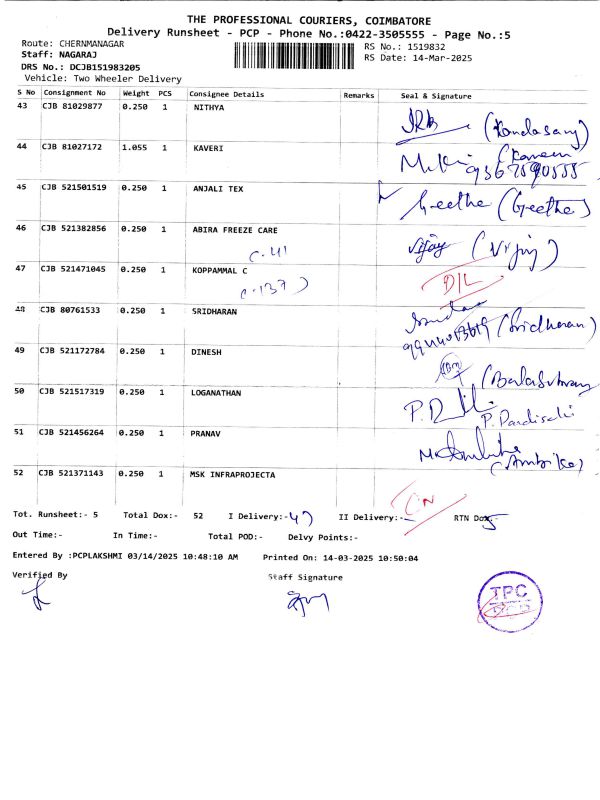 THE PROFESSIONAL COURIERS, COIMBATORE
Delivery Runsheet - PCP - Phone No.:0422-3505555 - Page No.:5
Route: CHERNMANAGAR
RS No.: 1519832
Staff: NAGARAJ
RS Date: 14-Mar-2025
DRS No.: DCJB151983205
Vehicle: Two Wheeler Delivery
S No Consignment No Weight PCS Consignee Details Remarks Seal & Signature
43 CJB 81029877 0.250 1 NITHYA
(Kandasamy)
44 CJB 81027172 1.055 1 KAVERI
45 CJB 521501519 0.250 1 ANJALI TEX
Geetha (Geetha)
46 CJB 521382856 0.250 1 ABIRA FREEZE CARE
Vijay (Vijay)
C-41
47 CJB 521471045 0.250 1 KOPPAMMAL C
D/L
C-137)
48 CJB 80761533 0.250 1 SRIDHARAN
(Sridharan)
49 CJB 521172784 0.250 1 DINESH
50 CJB 521517319 0.250 1 LOGANATHAN
51 CJB 521456264 0.250 1 PRANAV
(Ambika)
52 CJB 521371143 0.250 1 MSK INFRAPROJECTA
Tot. Runsheet:- 5 Total Dox:- 52 I Delivery:-47 II Delivery:- RTN Dox:-5
Out Time:- In Time:- Total POD:- Delvy Points:-
Entered By :PCPLAKSHMI 03/14/2025 10:48:10 AM Printed On: 14-03-2025 10:50:04
Verified By Staff Signature
TPC